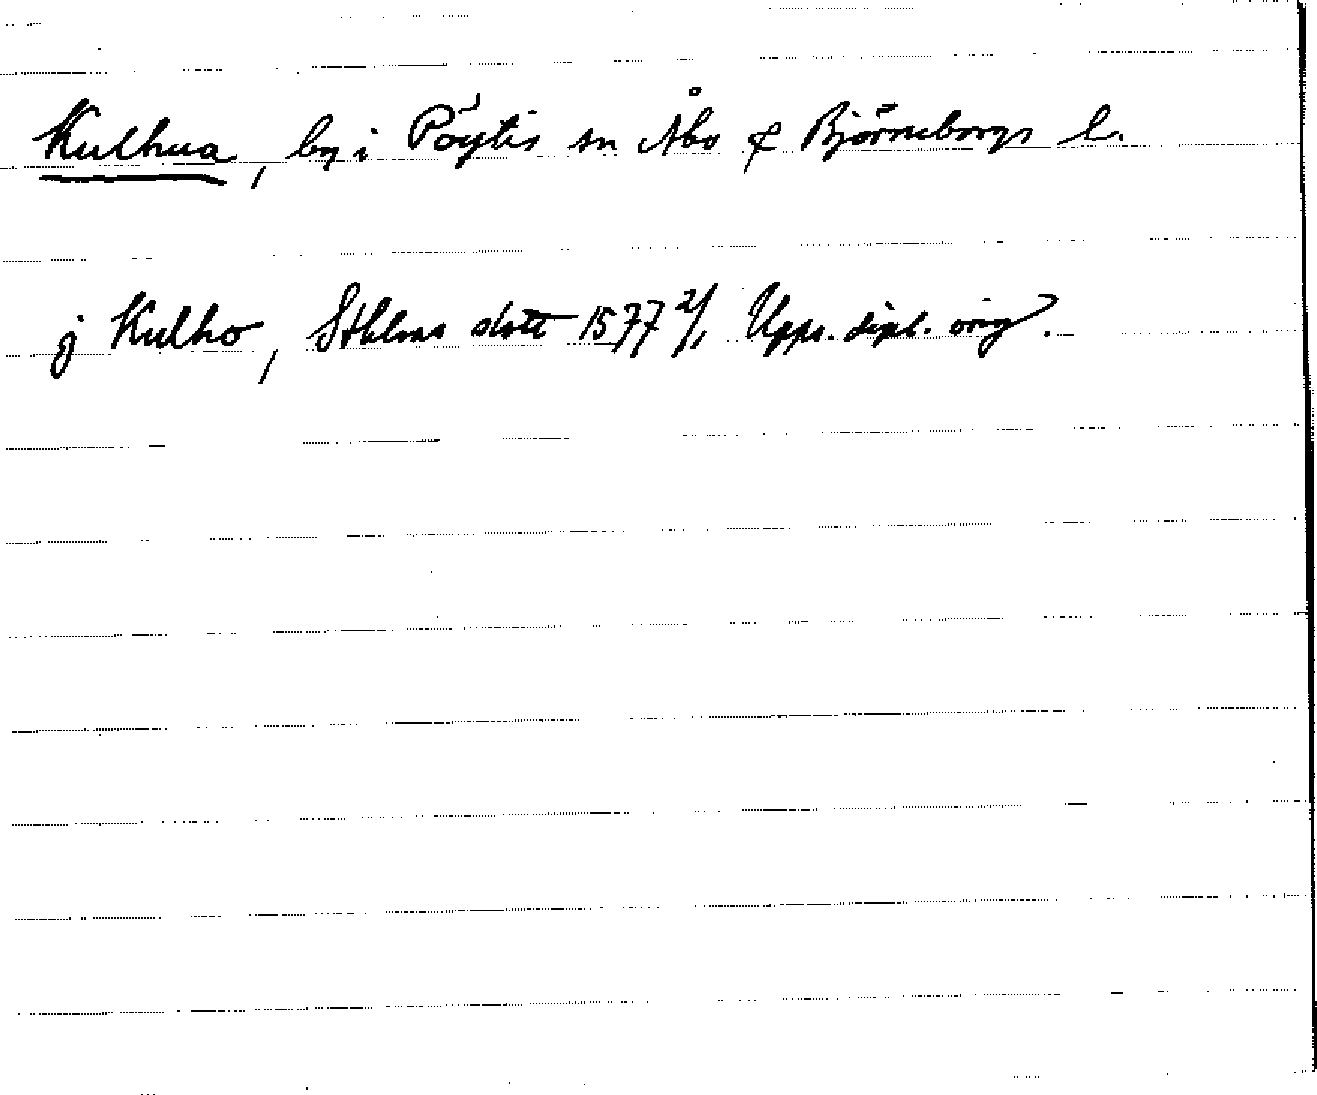 Kulhua, by i Pöytis sn Åbo & Björneborgs l.
j Kulho, Sthlms slott 1577 2/1 Upps. dipl. orig.